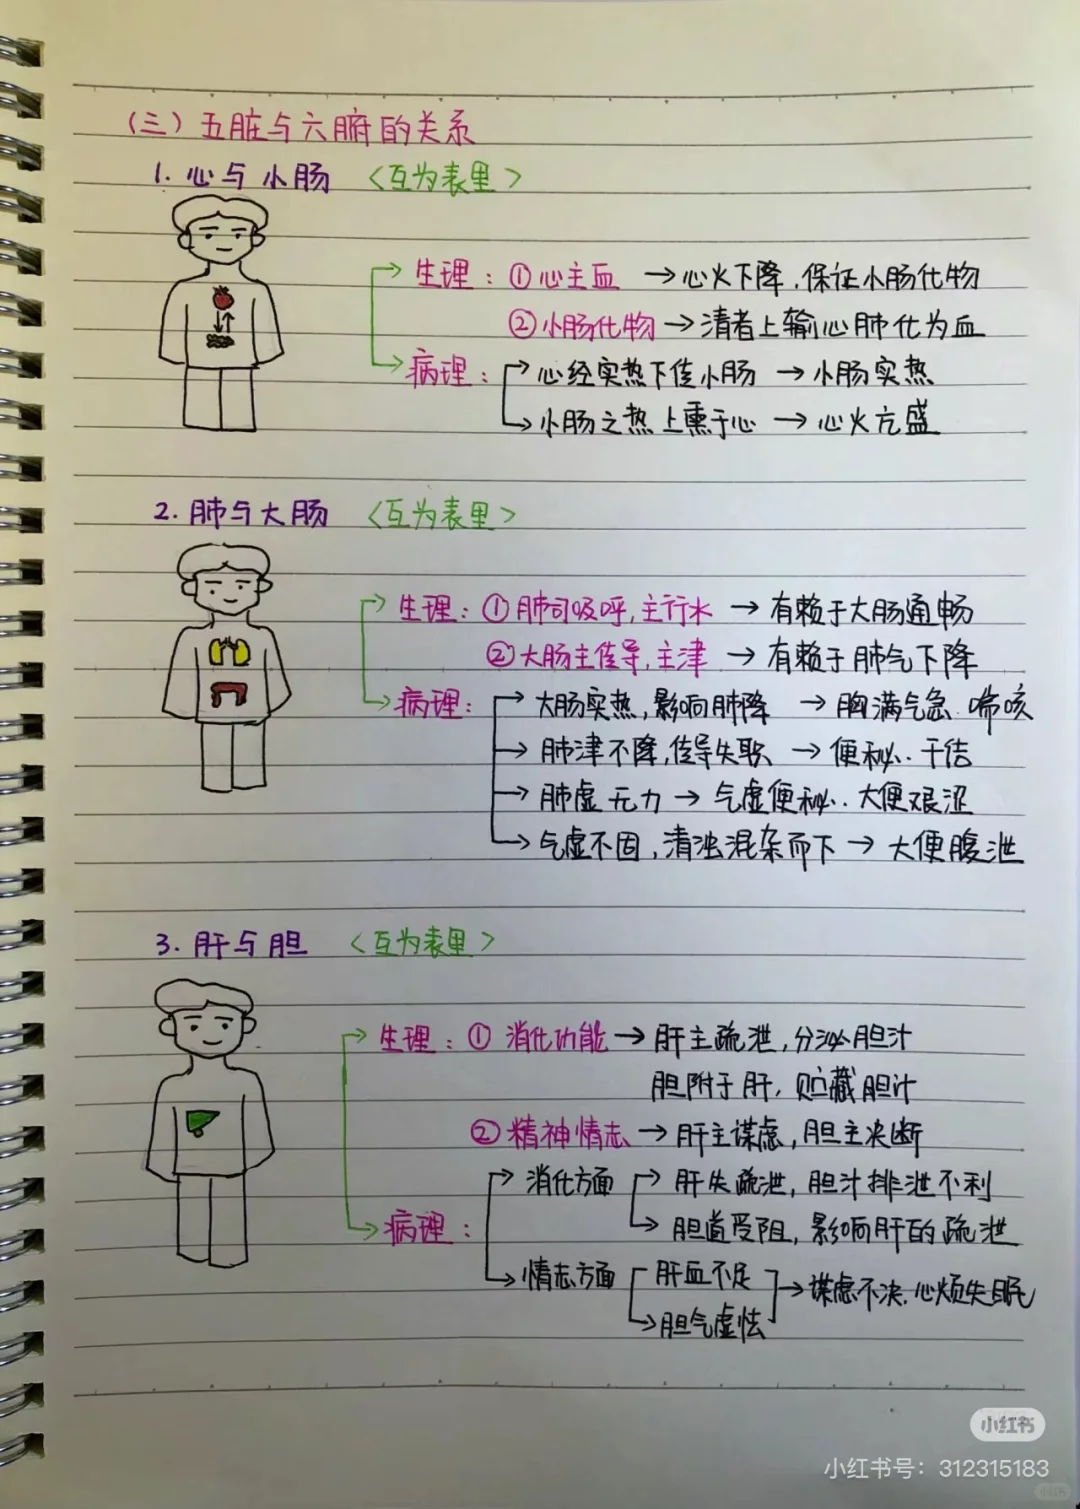 (三)五脏与六腑的关系
1. 心与小肠 <互为表里>
生理: ①心主血 →心火下降,保证小肠化物
②小肠化物→清者上输心肺化为血
病理: 心经实热下传小肠 →小肠实热
小肠之热上熏于心 →心火亢盛
2. 肺与大肠 <互为表里>
生理: ①肺司呼吸,主行水 →有赖于大肠通畅
②大肠主传导,主津 →有赖于肺气下降
病理: →大肠实热,影响肺降 →胸满气急.喘咳
→肺津不降,传导失职 →便秘.干结
→肺虚无力→气虚便秘.大便艰涩
→气虚不固,清浊混杂而下→大便腹泄
3. 肝与胆 <互为表里>
生理: ①消化功能→肝主疏泄,分泌胆汁
胆附于肝,贮藏胆汁
②精神情志→肝主谋虑,胆主决断
→消化方面 →肝失疏泄,胆汁排泄不利
→胆道受阻,影响肝的疏泄
病理:
→情志方面 肝血不足 →谋虑不决.心烦失眠
→胆气虚怯
小红书
小红书号: 312315183
小红书